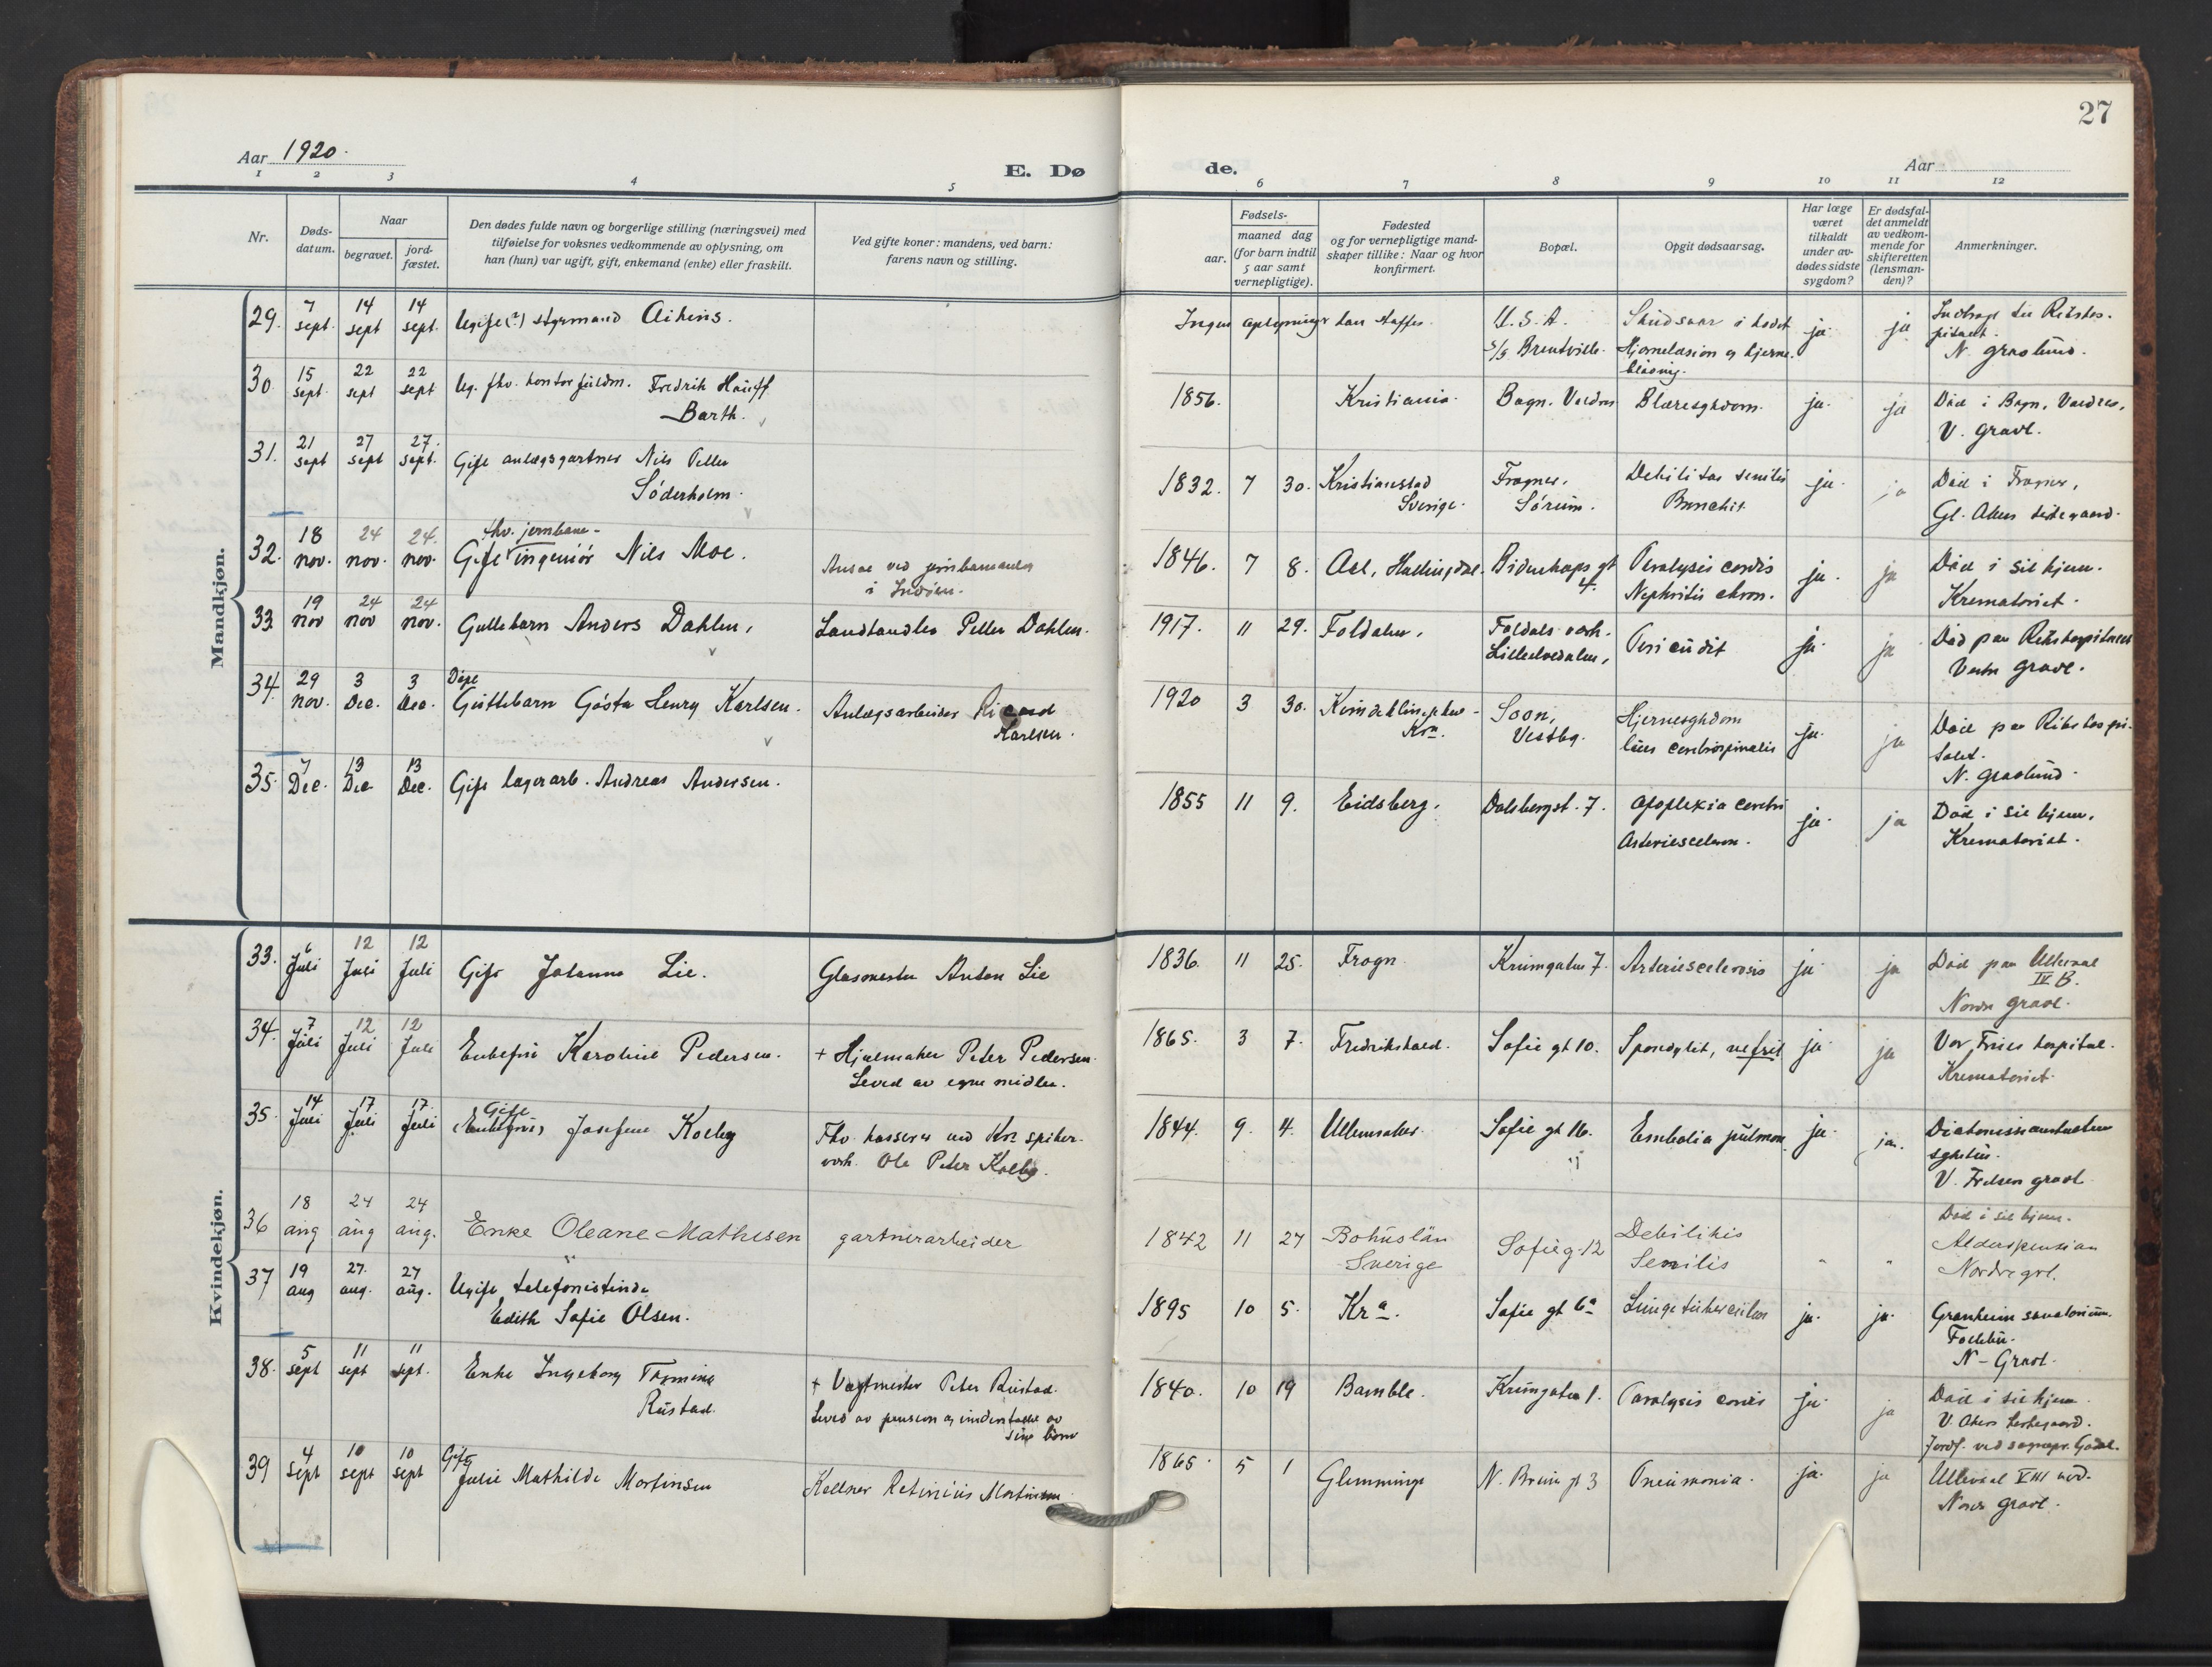 27
Aar 1920.
E. Dø
de.
Aar
1 2 3 4 5 6 7 8 9 10 11 12
Nr.
Døds-
datum.
Naar
begravet.
jord-
fæstet.
Den dødes fulde navn og borgerlige stilling (næringsvei) med
tilføielse for voksnes vedkommende av oplysning, om
han (hun) var ugift, gift, enkemand (enke) eller fraskilt.
Ved gifte koner: mandens, ved barn:
farens navn og stilling.
Fødsels-
aar.
maaned dag
(for barn indtil
5 aar samt
vernepligtige).
Fødested
og for vernepligtige mand-
skaper tillike: Naar og hvor
konfirmert.
Bopæl.
Opgit dødsaarsag.
Har læge
været
tilkaldt
under av-
dødes sidste
sygdom?
Er dødsfal-
det anmeldt
av vedkom-
mende for
skifteretten
(lensman-
den)?
Anmerkninger.
Mandkjøn.
29. 7 sept. 14 sept 14 sept. Ugift (?) styrmand Aikens. Ingen oplysninger kan skaffes. U.S.A.
S/S Brentville. Skudsaar i hodet
Hjernelæsion og hjerne-
blødning. ja. ja. Indbragt til Rikshos-
pitalet.
N. gravlund.
30. 15 sept. 22 sept 22 sept Ug. fhv. kontorfuldm. Fredrik Hauff
Barth. 1856. Kristiania. Bagn. Valdres Blæresygdom. ja. ja Død i Bagn, Valdres.
V. gravl.
31. 21 sept 27 sept 27. sept. Gift anlægsgartner Nils Petter
Söderholm. 1832. 7 30. Kristianstad
Sverige. Frogner.
Sørum. Debilitas senilis
Bronchit. ja. ja Død i Frogner,
Gl. Akers kirkegaard.
32. 18 nov. 24 nov. 24. nov. fhv. jernbane-
Gift ingeniör Nils Moe. Ansat ved jernbaneanlæg
1846. 7 8. Aal, Hallingdal. Paralysis cordis
Nephritis chron. ja. ja Død i sit hjem.
Krematoriet.
33. 19 nov 24 nov 24 nov. Guttebarn Anders Dahlen, Landhandler Petter Dahlen. 1917. 11 29. Foldalen, Foldals verk.
Lilleelvedalen, ja. ja Død paa Rikshospitalet
Vestre gravl.
34. 29 nov. 3 Dec. 3 Dec. Døpt
Guttebarn Gösta Henry Karlsen. Anlægsarbeider Ricard
Karlsen. 1920 3 30. Kvindeklinikken -
Kra. Soon,
Vestby. Hjernesygdom
lues cerebrospinalis ja. ja Død paa Rikshospi-
talet.
N. gravlund.
35. 7 Dec. 13 Dec 13 Dec. Gift lagerarb. Andreas Andersen. 1855 11 9. Eidsberg. Dalsbergst. 7. Apoplexia cerebri
Arteriesclerose. ja. ja Død i sit hjem.
Krematoriet.
Kvindekjøn.
33. 6 Juli 12 Juli 12 Juli Gift Johanna Lie. Glasmester Anton Lie 1836. 11 25. Frogn. Krumgaten 7. Arteriesclerosis ja. ja Død paa Ulleval
IV B.
Nordre gravl.
34. 7 Juli 12 Juli 12 Juli Enkefru Karoline Pedersen. + Hjulmaker Peter Pedersen.
Leved av egne midler. 1865. 3 7. Fredrikstad. Sofie gt 10. Spondylit, nefrit ja. ja Vor Frues hospital.
Krematoriet.
35. 14 Juli 17 Juli 17. Juli Gift
(Enkefru) Josefine Kolby Fhv. kasserer ved Kra spiker-
verk. Ole Peter Kolby. 1844. 9. 4. Ullensaker. Sofie gt 16. Embolia pulmon. ja. ja. Diakonisseanstaltens
sykehus.
V. Frelsers gravl.
36 18 aug 24 aug 24 aug. Enke Oleane Mathisen gartnerarbeider 1842 11 27 Bohuslän
Sverige Sofieg. 12 Debilitis
Senilis " " Død i sit hjem.
Alderspension
Nordre grl.
37 19 aug 27. aug. 27 aug. Ugift telefonistinde
Edith Sofie Olsen. 1895 10 5. Kra. Sofie gt 6a Lungetuberculose ja. ja. Granheim sanatorium.
Follebu.
N-Gravl.
38. 5 sept 11 sept 11 sept. Enke Ingeborg Thomine
Rustad. + Vagtmester Peter Rustad.
Leved av pension og understøttet av
sine børn 1840. 10 19 Bamble. Krumgaten 1. Paralysis cordis ja. ja Død i sit hjem.
V. Akers kirkegaard.
Jordf. ved sognepr. Gødal.
39 4 sept 10 sept 10 sept Gift
Julie Mathilde Mortinsen Kellner Retinius Mortinsen 1865. 5 1 Glemminge N. Brun gt 3 Pneumonia. ja. ja Ulleval VIII avd.
Nordre gravl.